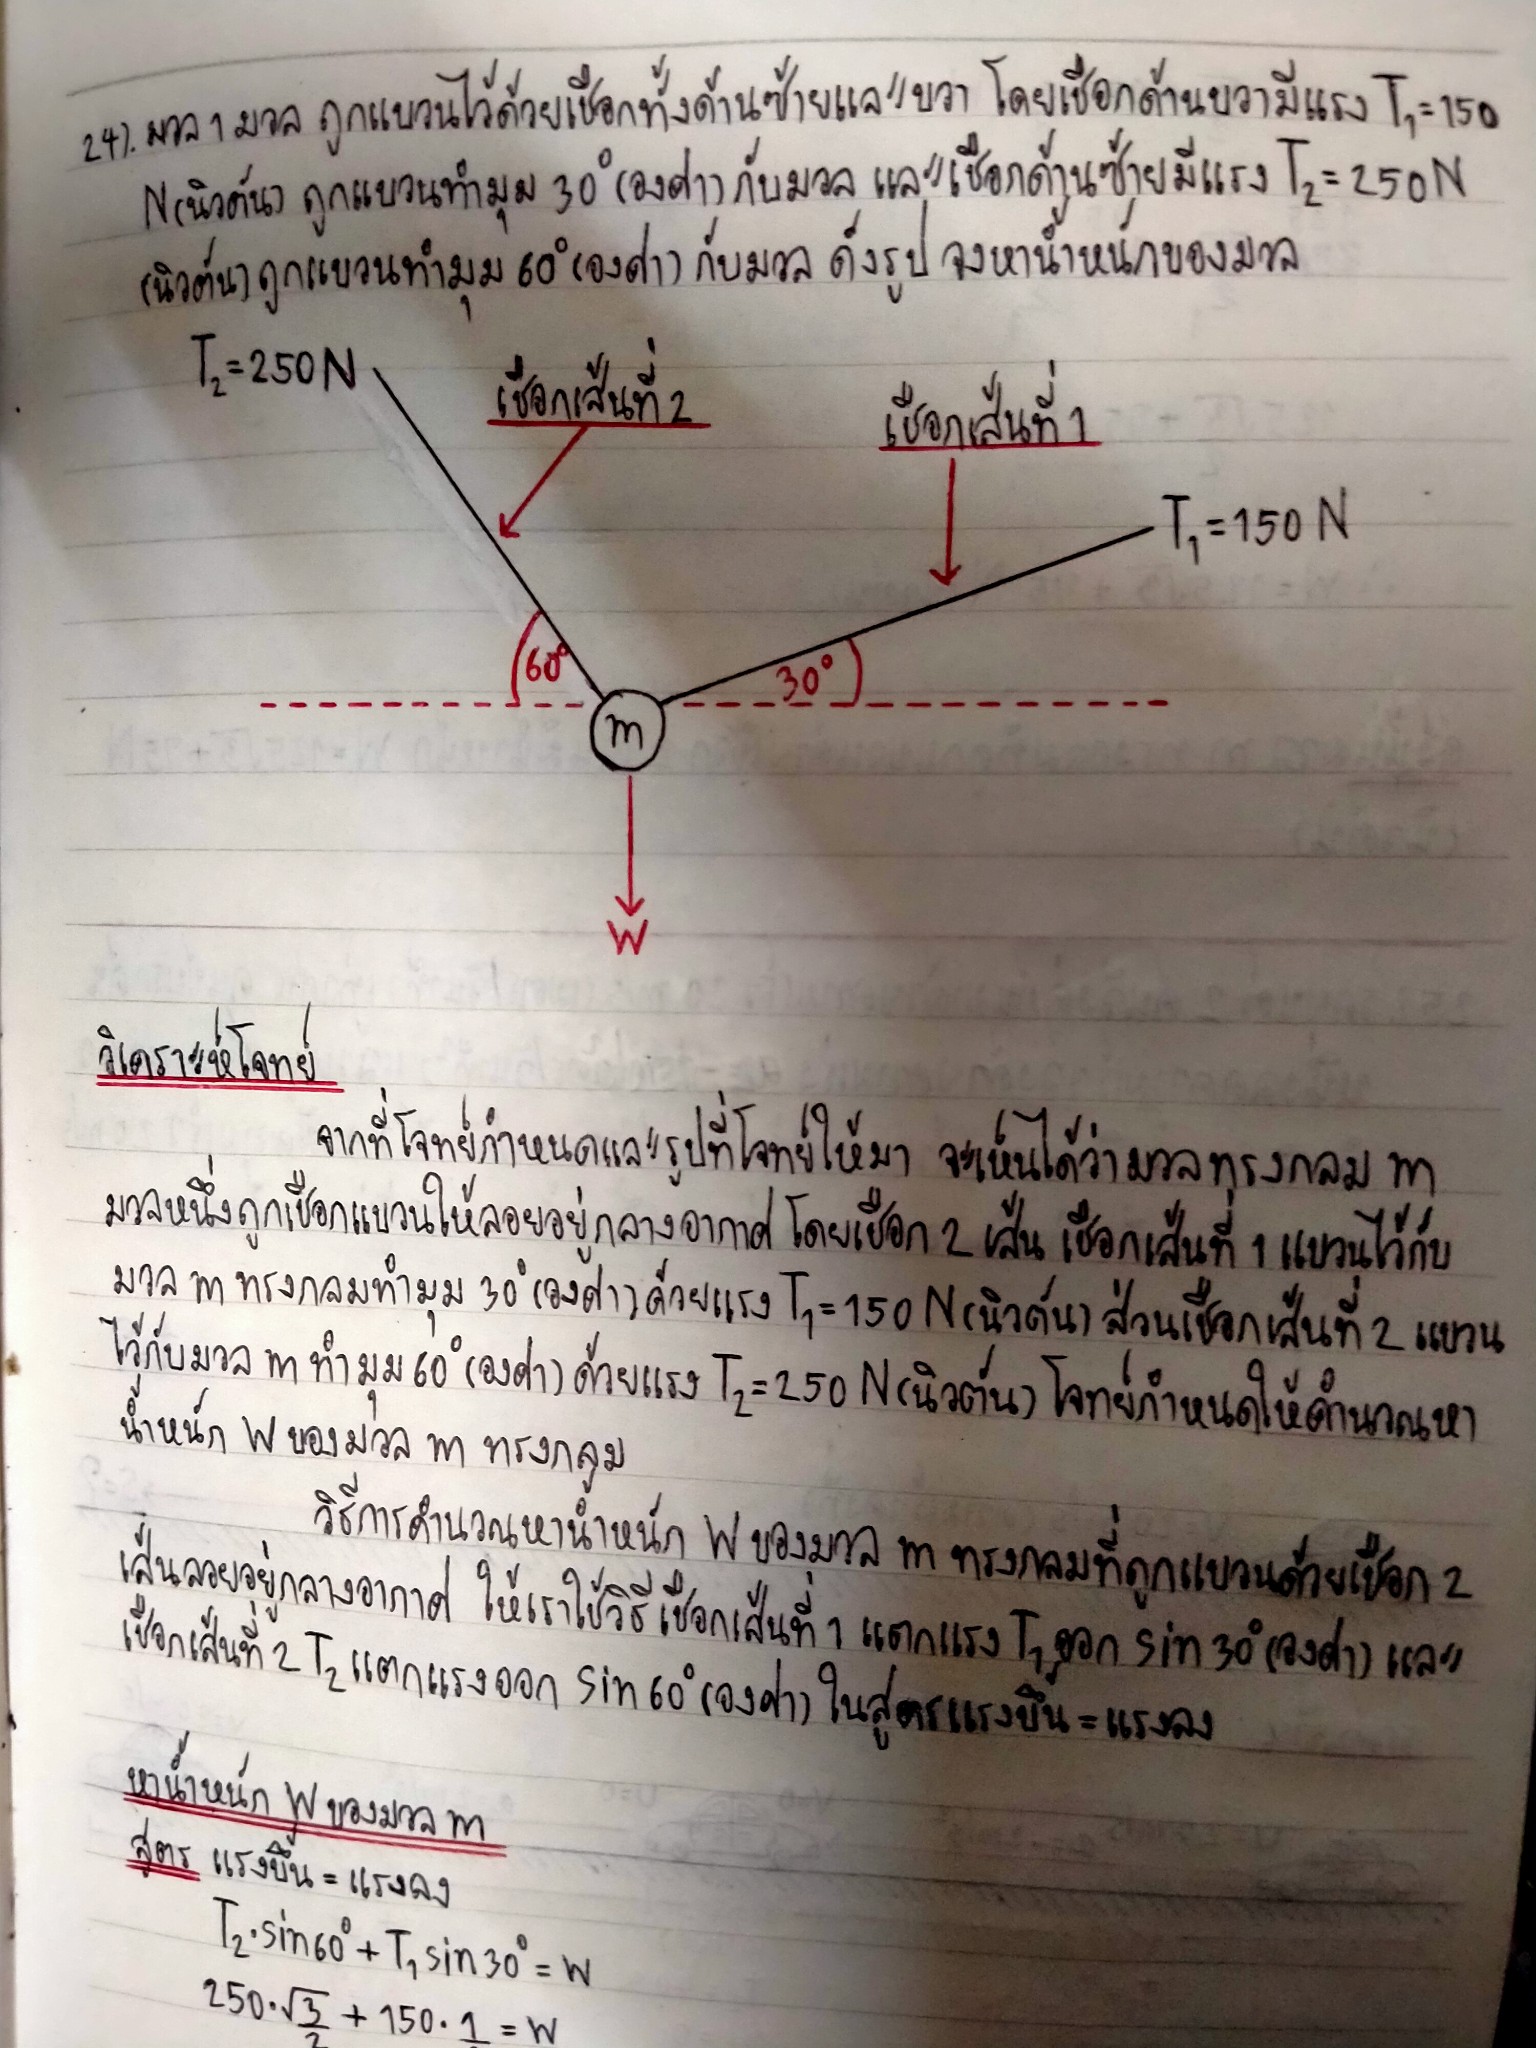 24). มวล 1 มวล ถูกแขวนไว้ด้วยเชือกทั้งด้านซ้ายและขวา โดยเชือกด้านขวามีแรง T₁=150
N(นิวตัน) ถูกแขวนทำมุม 30°(องศา) กับมวล และเชือกด้านซ้ายมีแรง T₂=250N
(นิวตัน) ถูกแขวนทำมุม 60°(องศา) กับมวล ดังรูป จงหาน้ำหนักของมวล
T₂=250N
เชือกเส้นที่ 2
เชือกเส้นที่ 1
T₁=150 N
60°
30°
m
W
วิเคราะห์โจทย์
จากที่โจทย์กำหนดและรูปที่โจทย์ให้มา จะเห็นได้ว่ามวลทรงกลม m
มวลหนึ่งถูกเชือกแขวนให้ลอยอยู่กลางอากาศ โดยเชือก 2 เส้น เชือกเส้นที่ 1 แขวนไว้กับ
มวล m ทรงกลมทำมุม 30°(องศา) ด้วยแรง T₁=150 N(นิวตัน) ส่วนเชือกเส้นที่ 2 แขวน
ไว้กับมวล m ทำมุม 60°(องศา) ด้วยแรง T₂=250 N(นิวตัน) โจทย์กำหนดให้คำนวณหา
น้ำหนัก W ของมวล m ทรงกลม
วิธีการคำนวณหาน้ำหนัก W ของมวล m ทรงกลมที่ถูกแขวนด้วยเชือก 2
เส้นลอยอยู่กลางอากาศ ให้เราใช้วิธี เชือกเส้นที่ 1 แตกแรง T₁ ออก sin 30°(องศา) และ
เชือกเส้นที่ 2 T₂ แตกแรงออก sin 60°(องศา) ในสูตรแรงขึ้น = แรงลง
หาน้ำหนัก W ของมวล m
สูตร แรงขึ้น = แรงลง
T₂·sin60° + T₁sin30° = W
250·√3/2 + 150·1/ = W